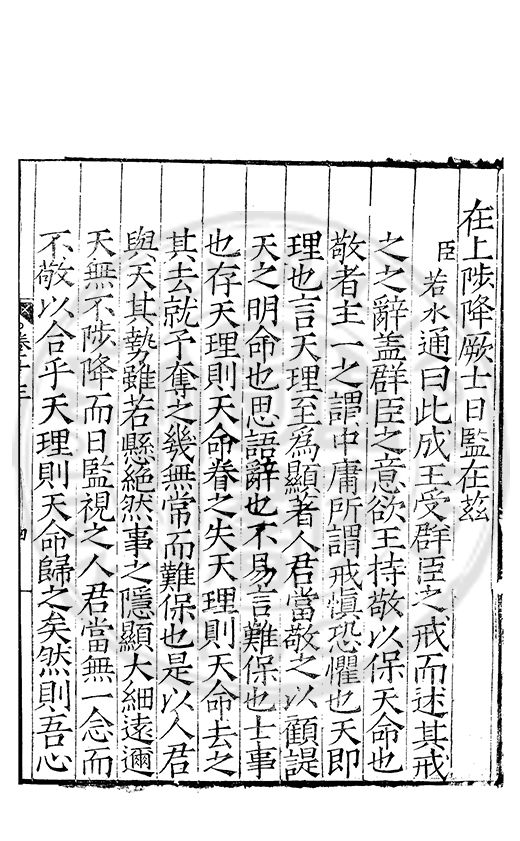 在上陟降厥士日監在茲
臣若水通曰此成王受群臣之戒而述其戒
之之辭盖群臣之意欲王持敬以保天命也
敬者主一之謂中庸所謂戒慎恐懼也天即
理也言天理至為顯著人君當敬之以顧諟
天之明命也思語辭也不易言難保也士事
也存天理則天命眷之失天理則天命去之
其去就予奪之幾無常而難保也是以人君
與天其勢雖若懸絕然事之隱顯大細遠邇
天無不陟降而日監視之人君當無一念而
不敬以合乎天理則天命歸之矣然則吾心
卷十三
四